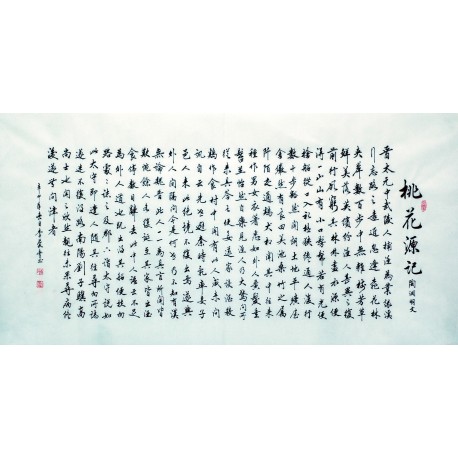 桃花源記
陶淵明文
晉太元中武陵人捕漁為業緣溪
行忘路之遠近忽逢桃花林
夾岸數百步中無雜樹芳草
鮮美落英繽紛漁人甚異之復
前行欲窮其林林盡水源便
得一山山有小口髣髴若有光便
捨船從口入初極狹才通人復行
數十步豁然開朗土地平曠屋
舍儼然有良田美池桑竹之屬
阡陌交通雞犬相聞其中往來
種作男女衣著悉如外人黃髮垂
髫並怡然自樂見漁人乃大驚問所
從來具答之便要還家設酒殺
雞作食村中聞有此人咸來問
訊自云先世避秦時亂率妻子
邑人來此絕境不復出焉遂與
外人間隔問今是何世乃不知有漢
無論魏晉此人一一為具言所聞皆
歎惋餘人各復延至其家皆出酒
食停數日辭去此中人語云不足
為外人道也既出得其船便扶向
路處處誌之及郡下詣太守說如
此太守即遣人隨其往尋向所誌
遂迷不復得路南陽劉子驥高
尚士也聞之欣然規往未果尋病終
後遂無問津者